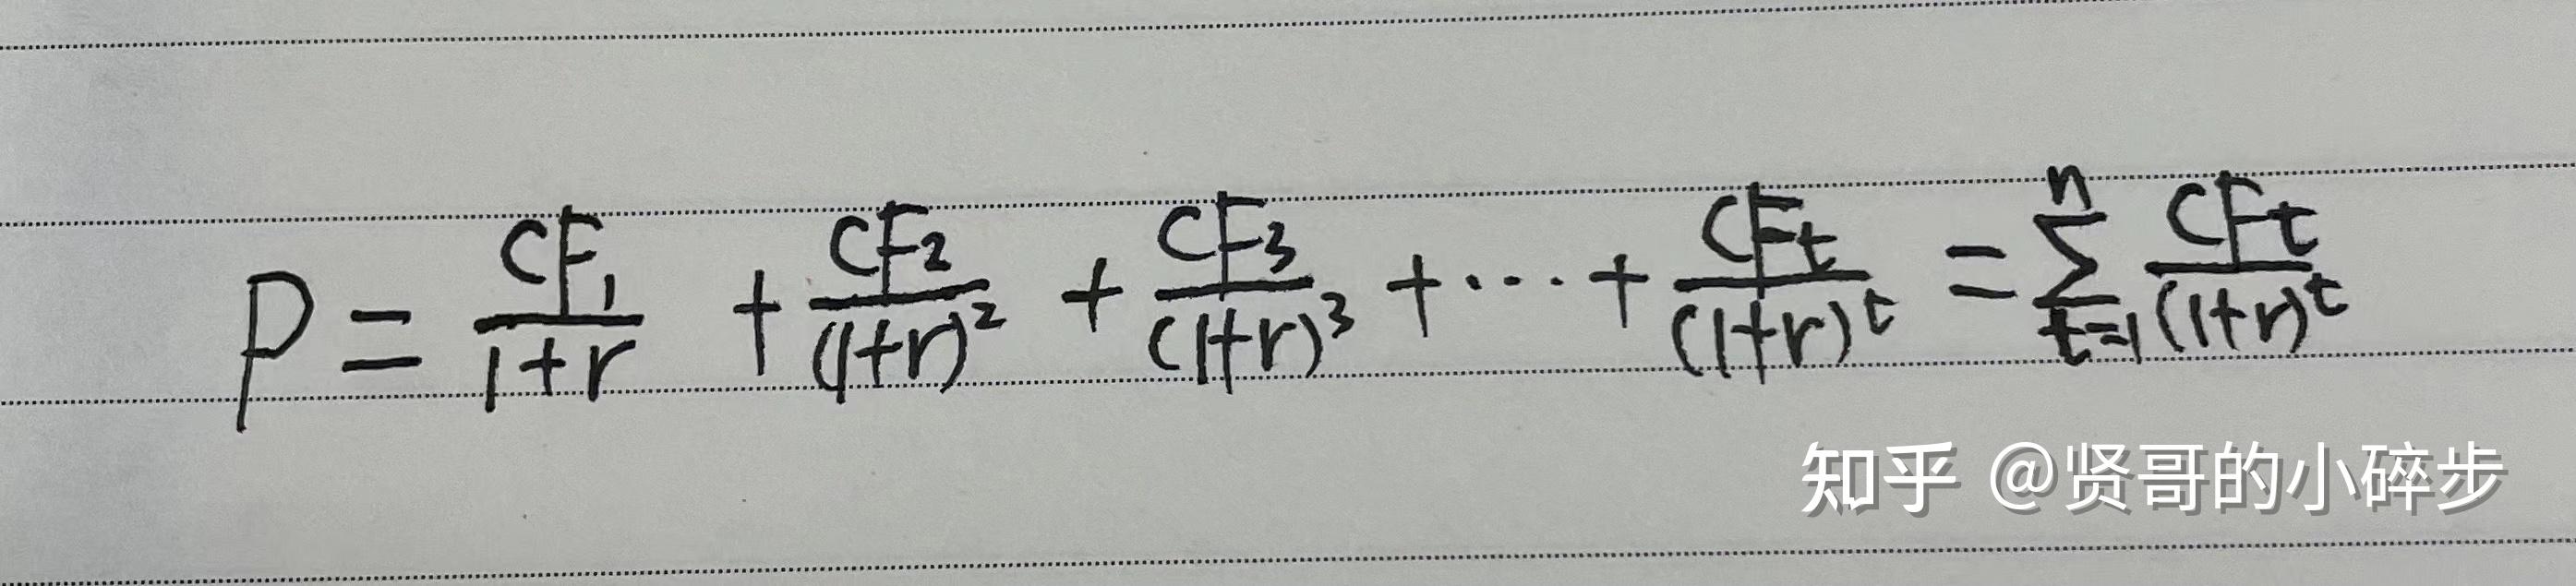 P = CF₁/(1+r) + CF₂/(1+r)² + CF₃/(1+r)³ + ··· + CFt/(1+r)^t = ∑_{t=1}^{n} CFt/(1+r)^t
知乎 @贤哥的小碎步